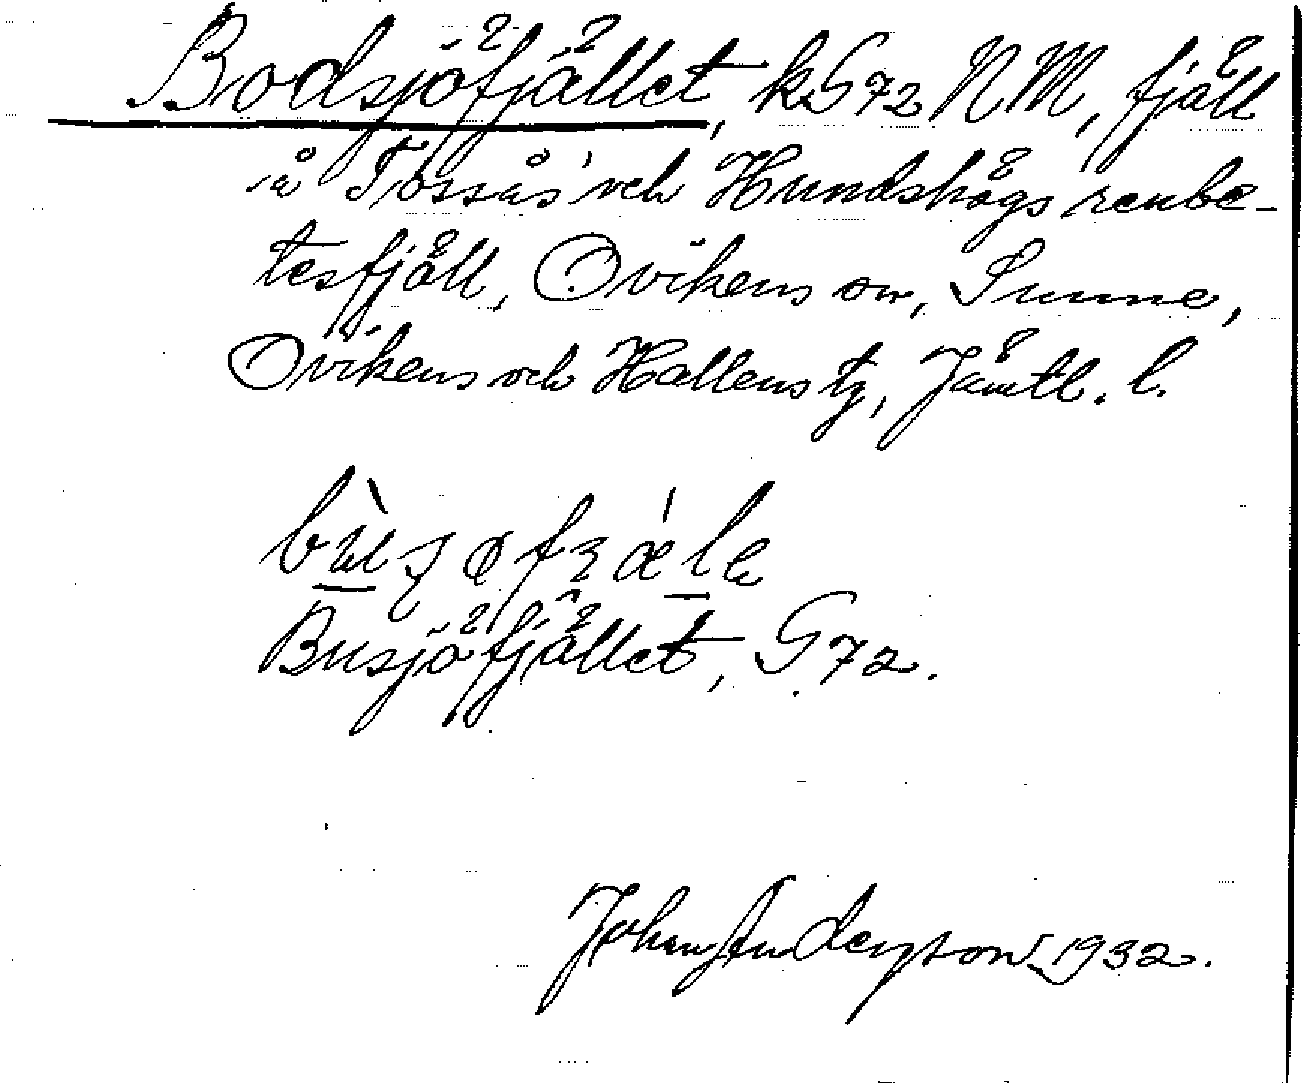 Bodsjöfjället, kG72 NM, fjäll
å Tossås' och Hundshögs renbe-
tesfjäll, Ovikens sn, Sunne,
Ovikens och Hallens tg, Jämtl. l.
Busjöfjället, G72.
Johan Anderson 1932.